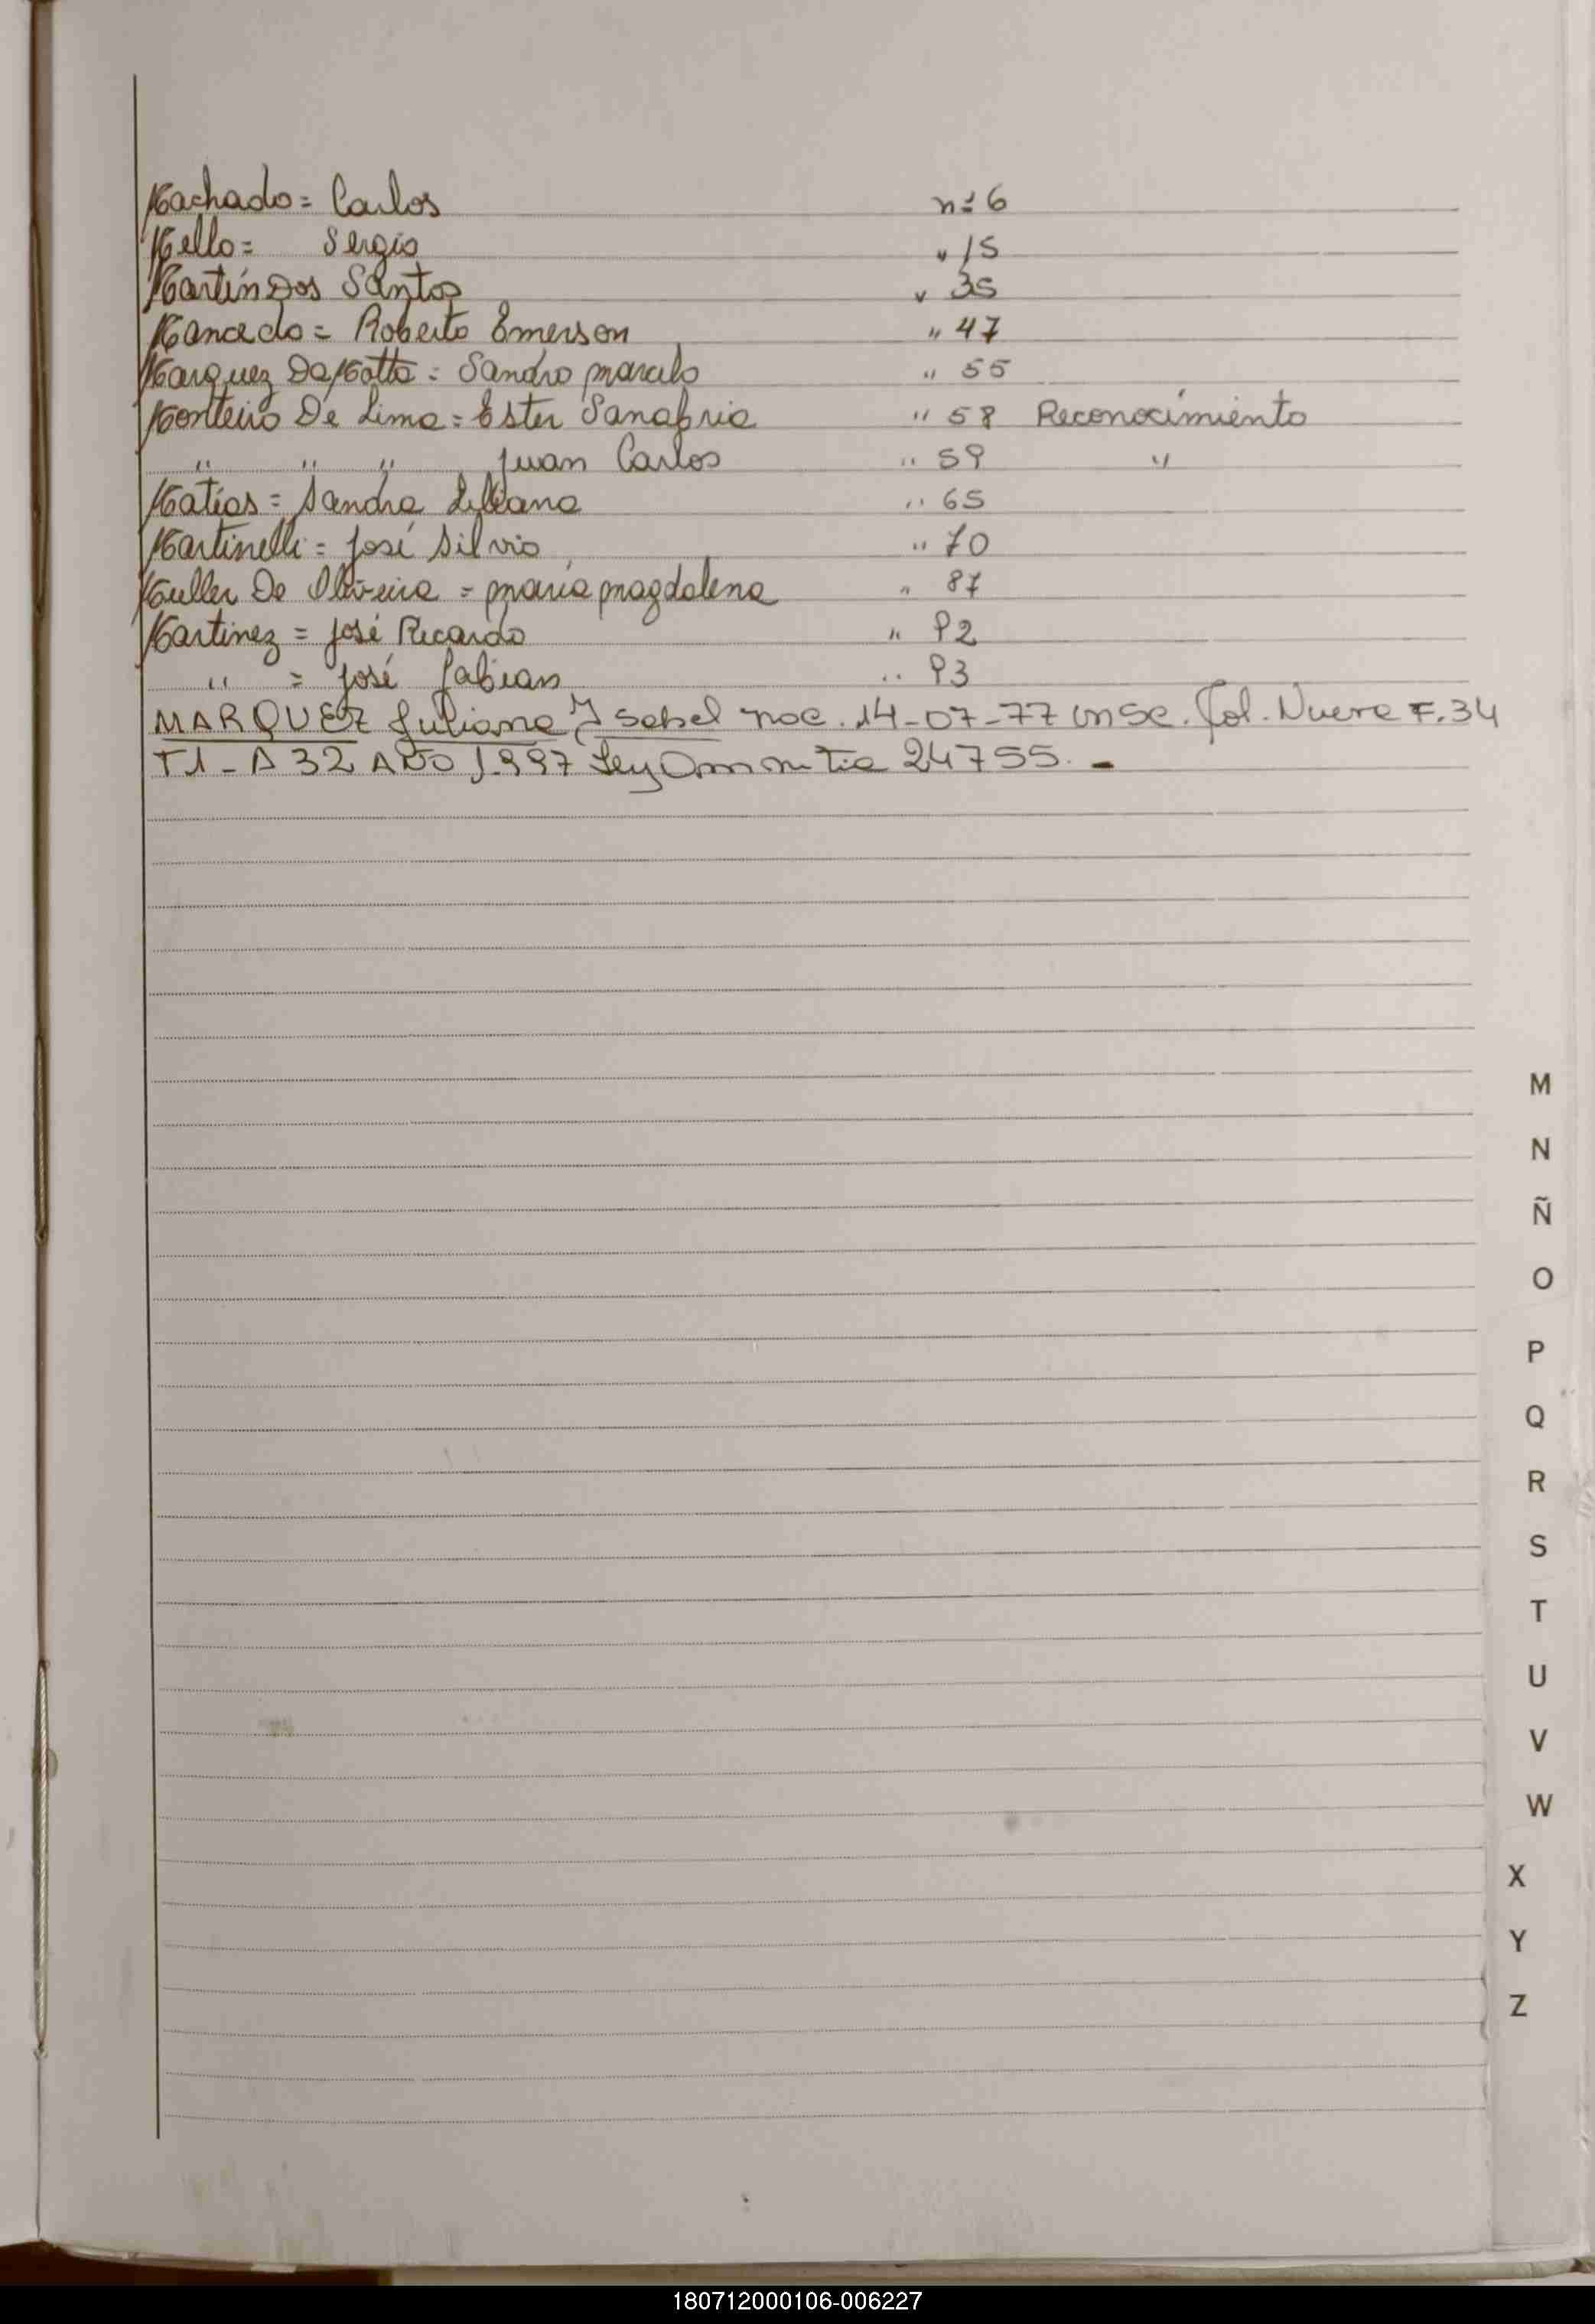 Machado = Carlos nº 6
Mello = Sergio " 15
Martín Dos Santos " 35
Mancedo = Roberto Emerson " 47
Marquez Da Motta = Sandro Marcelo " 55
Monteiro De Lima = Ester Sanabria " 58 Reconocimiento
" " " Juan Carlos " 59 "
Matias = Sandra Liliana " 65
Martinelli = José Silvio " 70
Muller De Oliveira = maría magdalena " 87
Martinez = José Ricardo " 92
" = José Fabian " 93
MARQUEZ Juliana Isabel nac. 14-07-77 insc. Fol. Nueve F. 34
T1 - A 32 AÑO 1.997 Ley Amnistia 24755. -
M
N
Ñ
O
P
Q
R
S
T
U
V
W
X
Y
Z
180712000106-006227